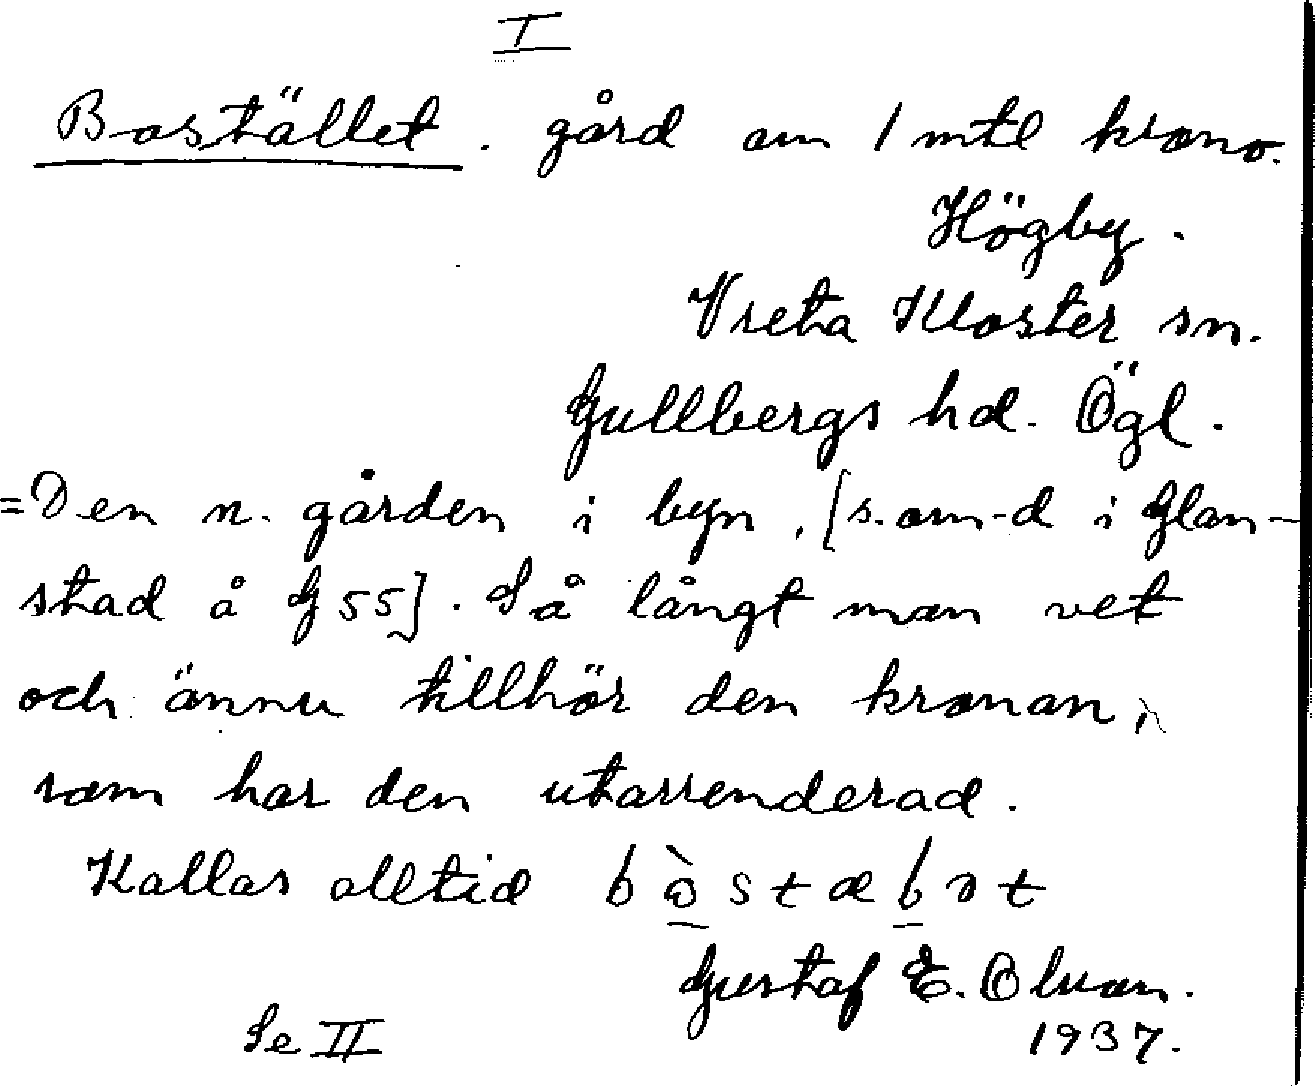 I
Bostället. gård om 1 mtl krono.
Högby.
Vreta Kloster sn.
Gullbergs hd. Ögl.
=Den n. gården i byn, [s. om-d i Glan-
stad å G 55]. Så långt man vet
och ännu tillhör den kronan,
som har den utarrenderad.
Kallas alltid
Gustaf E. Olson.
1937.
Se II